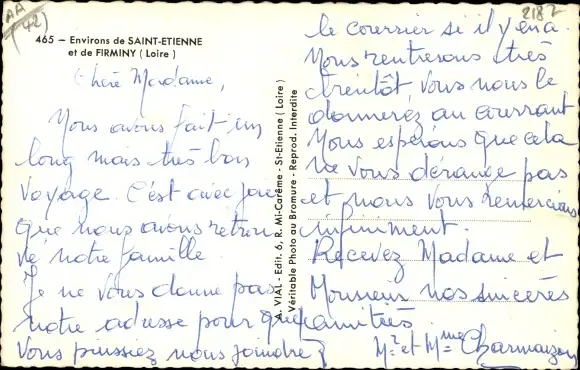 AA
(42)
2187
465 – Environs de SAINT-ETIENNE
et de FIRMINY ( Loire )
Chère Madame,
Nous avons fait un
long mais très bon
voyage. C'est avec joie
que nous avons retrou
vé notre famille.
Je ne vous donne pas
notre adresse pour que
vous puissiez nous joindre
A. VIAL - Edit. 6, R. Mi-Carême - St-Etienne ( Loire )
Véritable Photo au Bromure - Reprod. Interdite
le courrier si il y en a.
Nous rentrerons très
bientôt. Vous nous le
donnerez au courrant
Nous espérons que cela
ne vous dérange pas
et nous vous remercions
infiniment.
Recevez Madame et
Monsieur nos sincères
amitiés
Mr et Mme